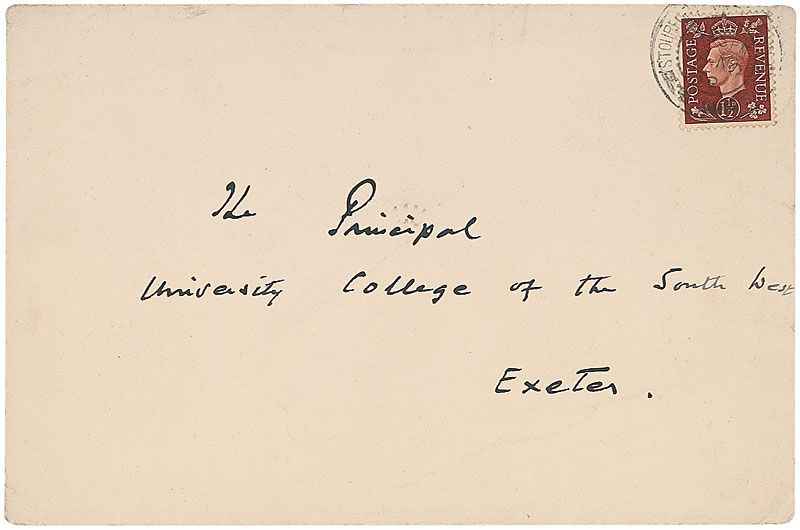 POSTAGE REVENUE
1½D
The Principal
University College of the South West
Exeter.